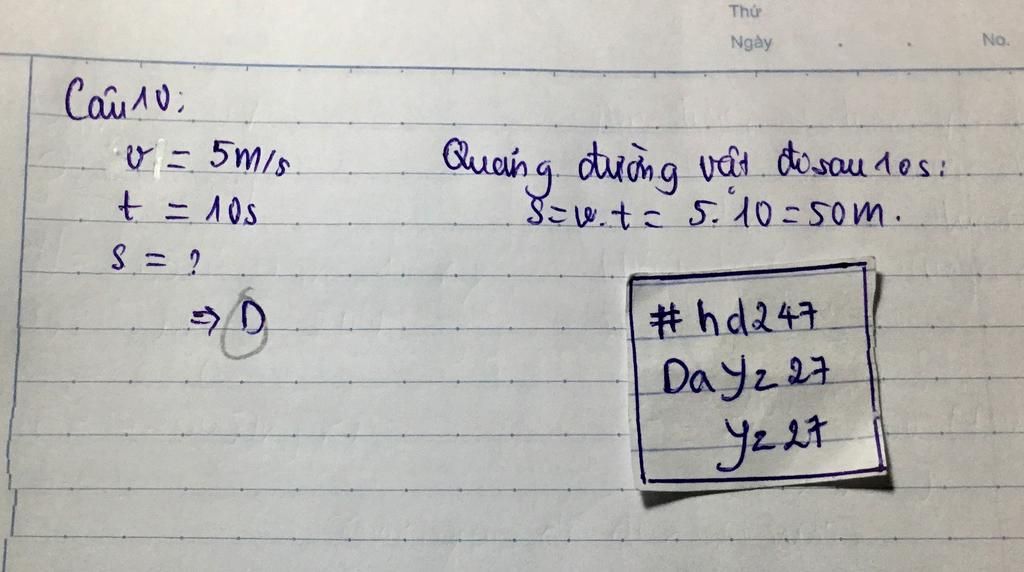 Thứ
Ngày . . No.
Câu 10:
v = 5m/s
t = 10s
s = ?
⇒ D
Quãng đường vật đo sau 10s:
S = v.t = 5.10 = 50m.
#hd247
DaYz27
Yz27